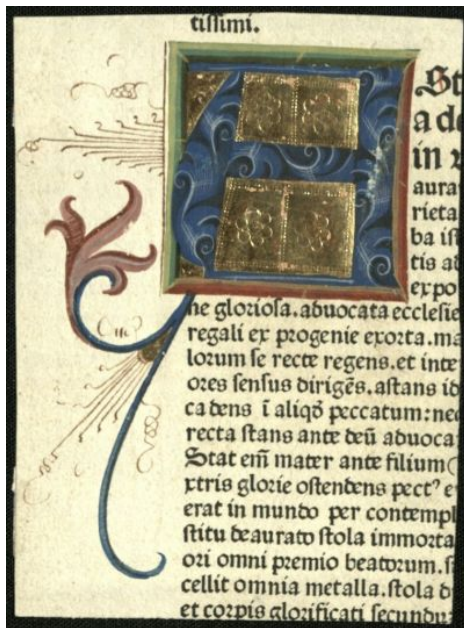 tissimi.
St
a de
in v
aura
rieta
ba ist
tis ad
expo
ne gloriosa. aduocata ecclesie
regali ex progenie exorta. ma
lorum se recte regens. et inte
ores sensus dirigēs. astans id
cadens ī aliqḋ peccatum: nec
recta stans ante deū aduoca
Stat em̄ mater ante filium
xtris glorie ostendens pectꝰ e
erat in mundo per contempl
stitu deaurato stola immorta
ori omni premio beatorum. s
cellit omnia metalla. stola d
et corpis glorificati secundu